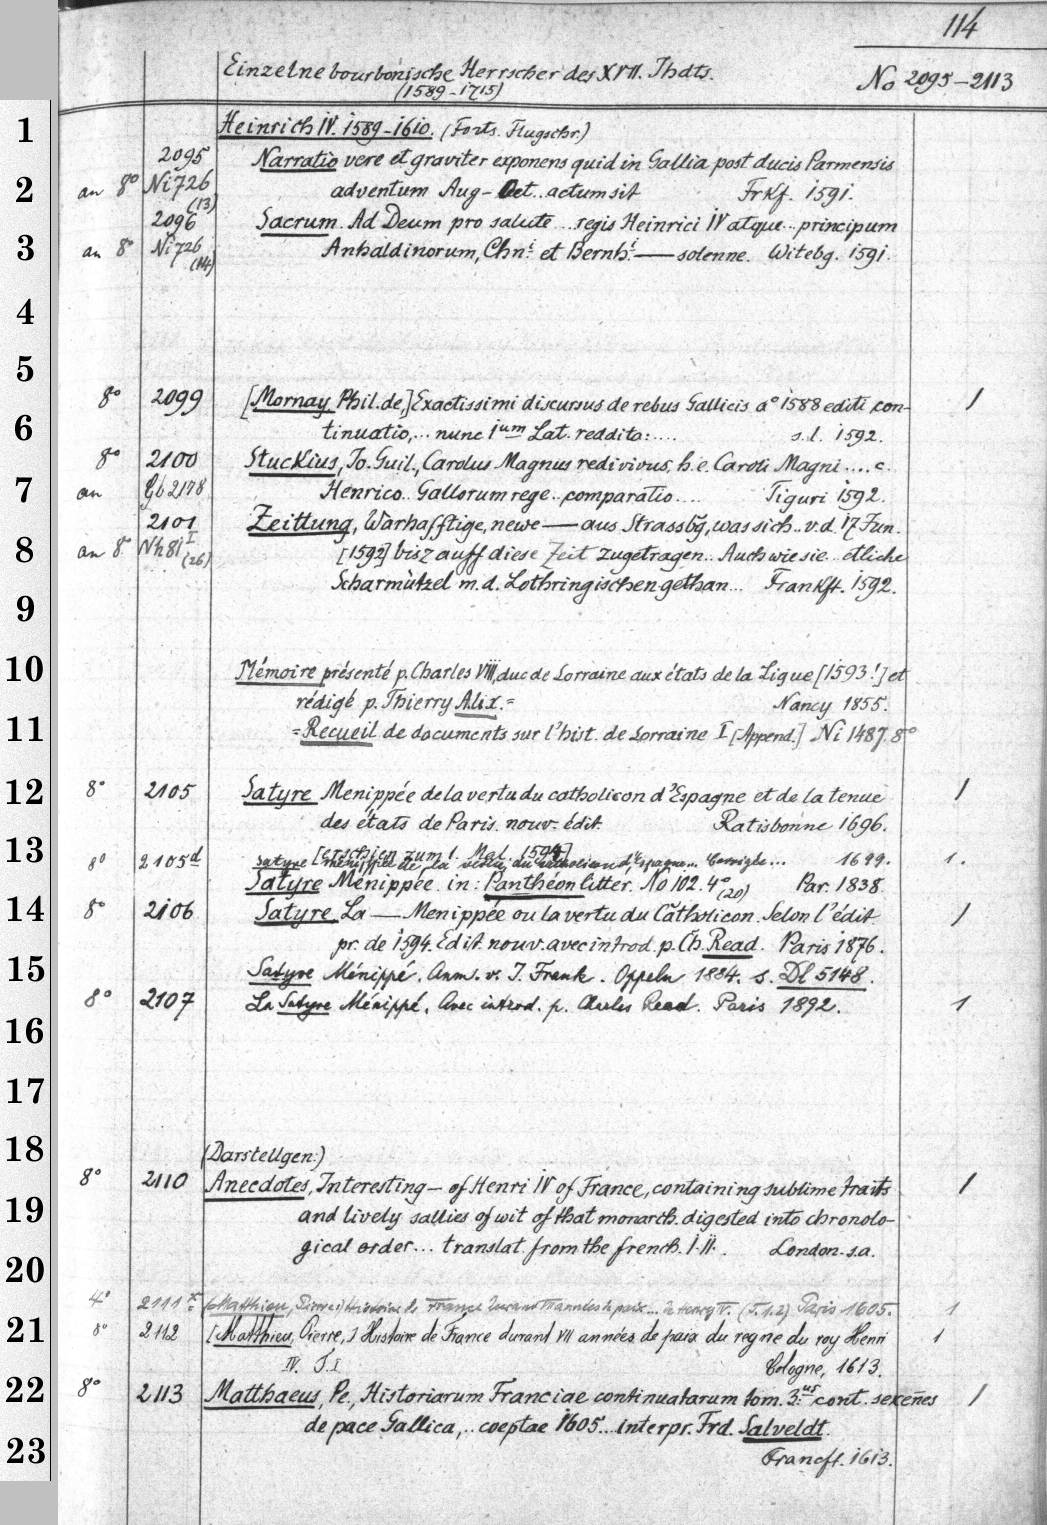 114
Einzelne bourbonische Herrscher des XVII. Jhdts.
(1589-1715)
No 2095-2113
1
Heinrich IV. 1589-1610. (Forts. Flugschr.)
2095 Narratio vere et graviter exponens quid in Gallia post ducis Parmensis
2 an 8° Ni 726 (13) adventum Aug- Oct.. actum sit Frkf. 1591.
2096 Sacrum. Ad Deum pro salute... regis Heinrici IV atque.. principum
3 an 8° Ni 726 (14) Anhaldinorum, Chn.i et Bernh.i — solenne. Witebg. 1591.
4
5
8° 2099 [Mornay, Phil. de,] Exactissimi discursus de rebus Gallicis a° 1588 editi con- 1
6 tinuatio,... nunc 1um Lat. reddita:.... s.l. 1592.
8° 2100 Stuckius, Jo. Guil., Carolus Magnus redivivus, h.e. Caroli Magni .... c.
7 an Gb 2178 Henrico.. Gallorum rege.. comparatio.... Tiguri 1592.
2101 Zeittung, Warhafftige, newe — aus Strassbg, was sich.. v.d. 17 Jun.
8 an 8° Nh 81 I (26) [1592] bisz auff diese Zeit zugetragen.. Auch wie sie.. etliche
Scharmützel m.d. Lothringischen gethan... Frankft. 1592.
9
10 Mémoire présenté p. Charles VIII, duc de Lorraine aux états de la Ligue [1593!] et
rédigé p. Thierry Alix.= Nancy 1855.
11 =Recueil de documents sur l'hist. de Lorraine I [Append.] Ni 1487. 8°
12 8° 2105 Satyre Menippée de la vertu du catholicon d'Espagne et de la tenue 1
des états de Paris. nouv. édit. Ratisbonne 1696.
13 [erschien zum 1. Mal 1594]
8° 2105d Satyre Menippée de la vertu du catholicon d'Espagne... Corrigée... 1699. 1.
Satyre Menippée in: Panthéon litter. No 102. 4° (20) Par. 1838
14 8° 2106 Satyre La — Menippée ou la vertu du Catholicon. Selon l'édit. 1
pr. de 1594. Edit. nouv. avec introd. p. Ch. Read. Paris 1876.
15 Satyre Ménippé. Anm. v. J. Frank. Oppeln 1884. s. Dl 5148.
8° 2107 La Satyre Ménippé. Avec introd. p. Charles Read. Paris 1892. 1
16
17
18 (Darstellgen:)
8° 2110 Anecdotes, Interesting — of Henri IV of France, containing sublime traits 1
19 and lively sallies of wit of that monarch. digested into chronolo-
gical order... translat. from the french. I. II. London s.a.
20
4° 2111 (Matthieu, Pierre) Histoire de France durant 7 années de paix... de Henry IV. (T. 1.2) Paris 1605. 1
21 8° 2112 [Matthieu, Pierre,] Histoire de France durant VII années de paix du regne du roy Henri 1
IV. T.I Cologne, 1613.
22 8° 2113 Matthaeus, Pe., Historiarum Franciae continuatarum tom. 3.us cont. sexeñes 1
de pace Gallica,.. coeptae 1605... interpr. Frd. Salveldt.
23 Francft. 1613.